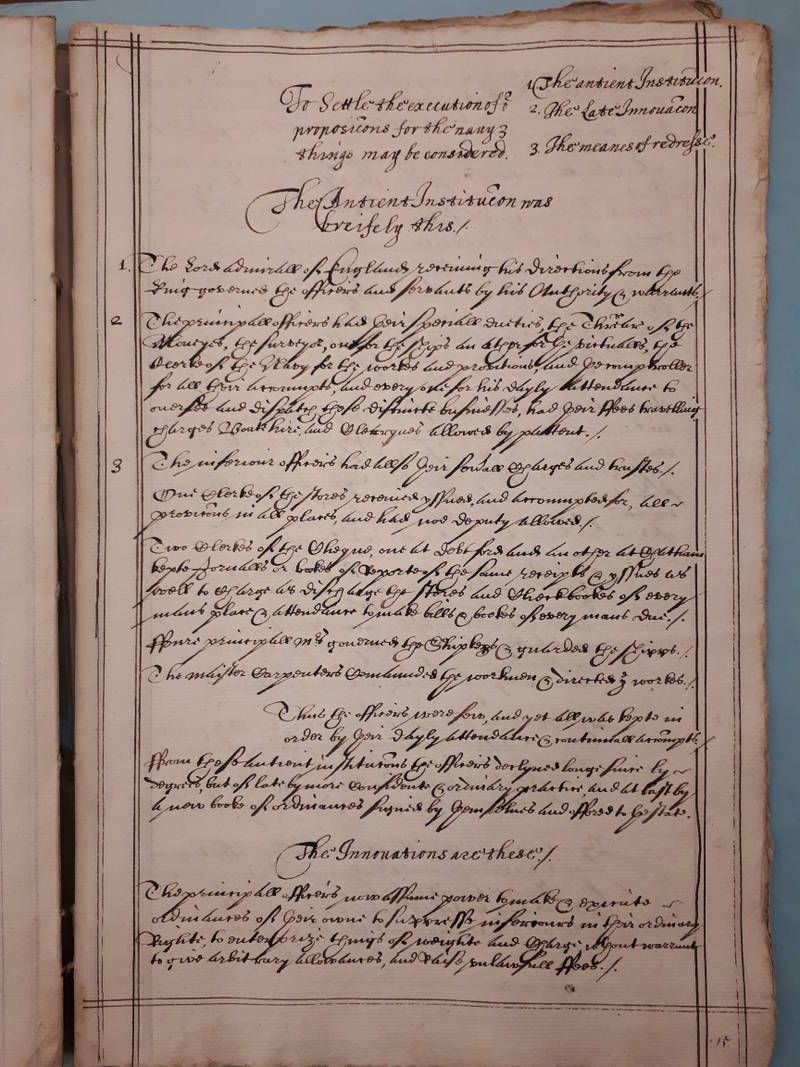 To Settle the execution of ye
proposicons for the navy 3
things may be considered.
1. The antient Institucon.
2. The Late Innovacon
3. The meanes of redresse.
The Antient Institucon was
breifely this./
1. The Lord admirall of England receiuing his directions from the
King governed the officers and servants by his Authority & warrants./
2 The principall officers had their speciall dueties, the Threr of the
Moneyes, the surveyor, one for the shipps an other for the victualls, the
Clerke of the Navy for the workes and provicons, and the comptroller
for all their accompts, and every one for his dayly attendance to
oversee and dispatch these distincte businesses, had their ffees travelling
charges Boathire, and Clearques allowed by pattent./.
3 The inferiour officers had allso their severall Charges and trustes./.
One Clerke of the stores received yssued, and accompted for, all
provicons in all places, and had noe deputy allowed./.
Two Clerkes of the Cheque, one at Debtford and an other at Chatham
kepte Jornalls or bookes of Reporte of the same receipts & yssues as
well to charge as discharge the stores and Checkbookes of every
mans place & attendance to make bills & bookes of every mans due./.
ffoure principall Mrs governed the Shipkeprs & guarded the shipps./.
The maister Carpenters Comaunded the workmen & directed ye workes./.
Thus the officers were few, and yet all was kepte in
order by their dayly attendance & continuall accompts./
ffrom these antient institucons the officers declyned longe since by
degrees, but of late by more Confidente & ordinary practice, and at last by
a new booke of ordinances signed by themselves and offered to the state.
The Innovations are these./.
The principall officers now assume power to make & execute
ordinances of their owne to suppresse inferiours in their ordinary
Rights, to enterprize things of weighte and Charge without warrant
to give arbitrary allowances, and Raise unlawfull ffees./.
15